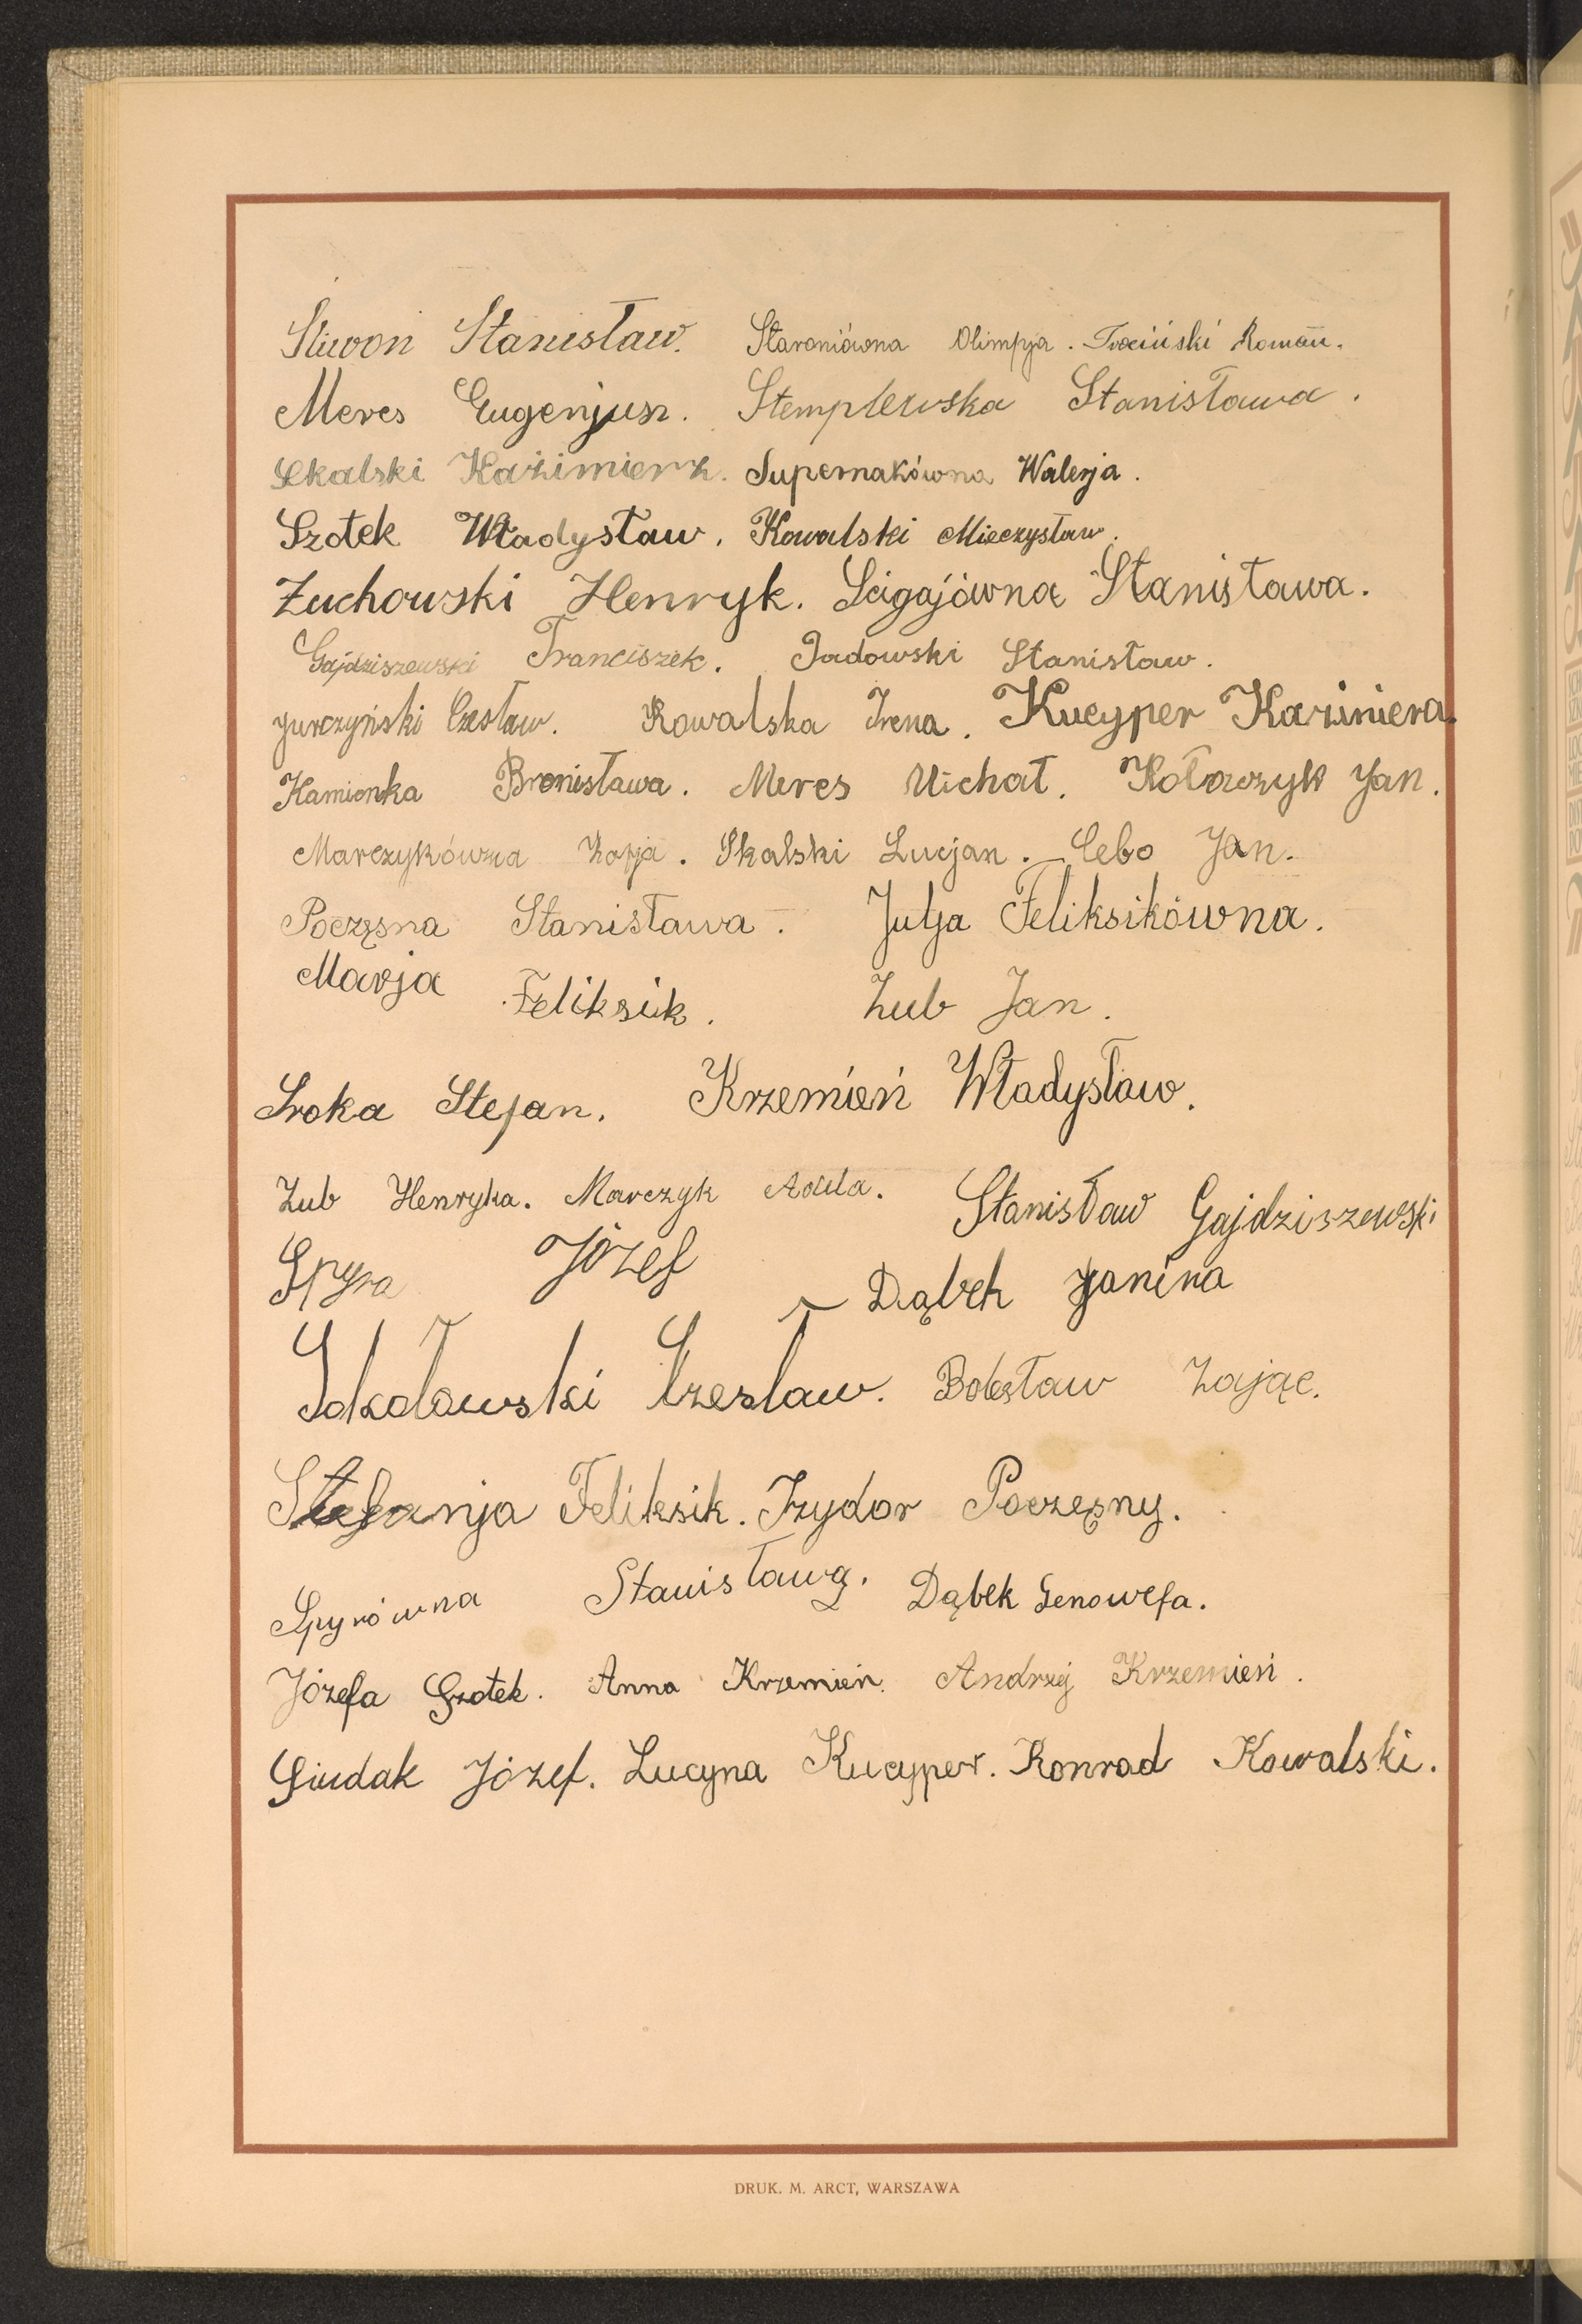 Śliwoń Stanisław. Staroniówna Olimpja. Trociński Roman.
Meres Eugenjusz. Stemplewska Stanisława.
Skalski Kazimierz. Supernakówna Walerja.
Szotek Władysław. Kowalski Mieczysław.
Żuchowski Henryk. Ścigajówna Stanisława.
Gajdziszewski Franciszek. Jadowski Stanisław.
Jurczyński Czesław. Kowalska Irena. Kucyper Kazimiera.
Kamionka Bronisława. Meres Michał. Kołaczyk Jan.
Marczykówna Zofja. Skalski Lucjan. Cebo Jan.
Poczęsna Stanisława. Julja Feliksikówna.
Marja Feliksik. Zub Jan.
Sroka Stefan. Krzemień Władysław.
Zub Henryka. Marczyk Adela. Stanisław Gajdziszewski
Spyra Józef Dąbek Janina
Sokołowski Czesław. Bolesław Zając.
Stefanja Feliksik. Izydor Poczęsny.
Spyrówna Stanisława. Dąbek Genowefa.
Józefa Szotek. Anna Krzemień. Andrzej Krzemień.
Siudak Józef. Lucyna Kucyper. Konrad Kowalski.
DRUK. M. ARCT, WARSZAWA